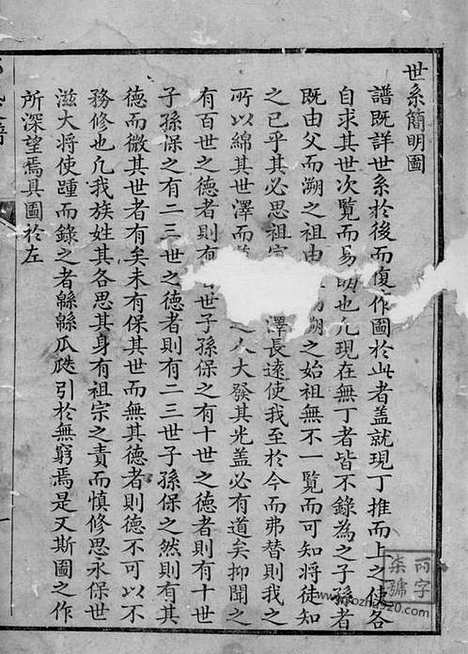 世系簡明圖
譜既詳世系於後而復作圖於此者盖就現丁推而上之使各
自求其世次覽而易明也凡現在無丁者皆不錄為之子孫者
既由父而溯之祖由溯之始祖無不一覽而可知將徒知
之已乎其必思祖宗澤長遠使我至於今而弗替則我之
所以綿其世澤而之人大發其光盖必有道矣抑聞之
有百世之德者則有百世子孫保之有十世之德者則有十世
子孫保之有二三世之德者則有二三世子孫保之然則有其
德而微其世者有矣未有保其世而無其德者則德不可以不
務修也凡我族姓其各思其身有祖宗之責而慎修思永保世
滋大將使踵而錄之者緜緜瓜瓞引於無窮焉是又斯圖之作
所深望焉具圖於左
丙字
柒號
www.fozhu920.com